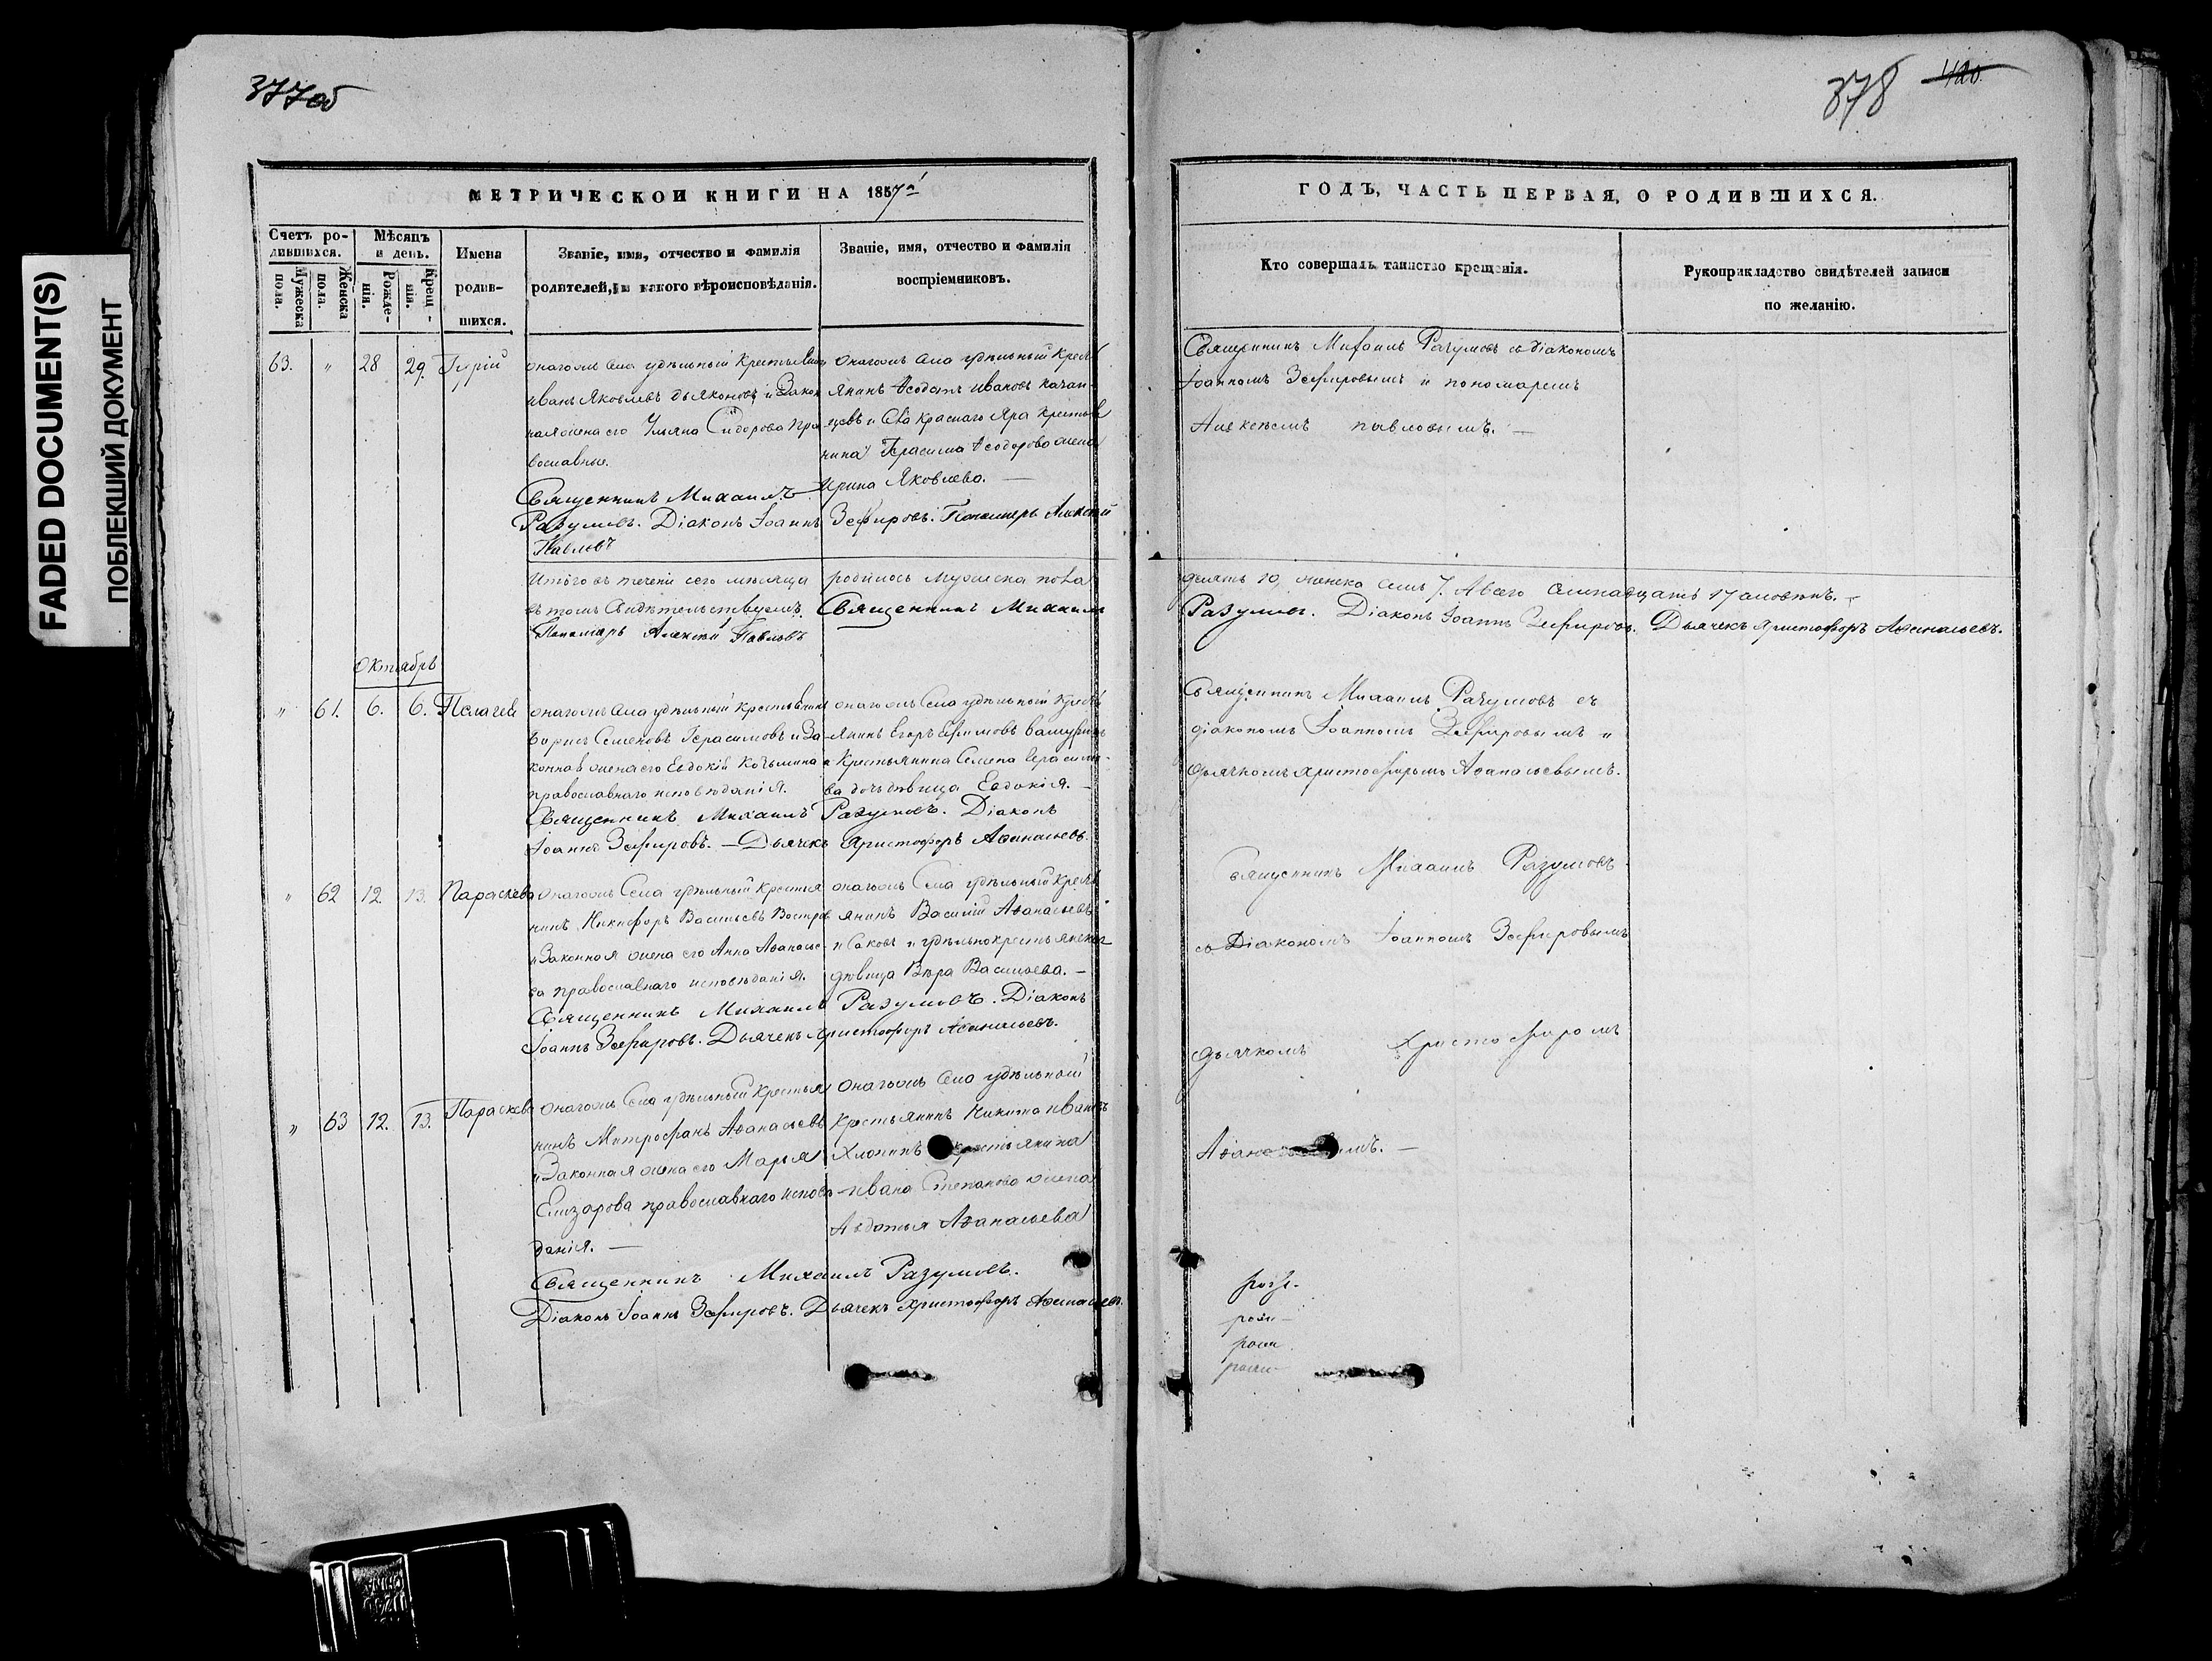 FADED DOCUMENT(S)
ПОБЛЕКШИЙ ДОКУМЕНТ
377об
МЕТРИЧЕСКОЙ КНИГИ НА 1857й
Счетъ родившихся.
Мужеска пола.
Женска пола.
Мѣсяцъ и день.
Рожденія.
Крещенія.
Имена родившихся.
Званіе, имя, отчество и фамилія
родителей, и какого вѣроисповѣданія.
Званіе, имя, отчество и фамилія
воспріемниковъ.
63. " 28 29. Гурій
онагожъ Села удѣльный Крестьянинъ
Иванъ Яковлевъ Дьяконовъ и Закон
ная жена его Ульяна Сидорова пра
вославные.
онагожъ Села удѣльный Крестья
янинъ Ѳеодотъ Ивановъ
и Села Краснаго Яра Крестья
нина Герасима Ѳеодорова жена
Ирина Яковлева. —
Священникъ Михаилъ
Разумовъ. Діаконъ Іоаннъ Зефировъ. Пономарь Алексѣй
Павловъ
Итого въ теченіи сего мѣсяца родилось мужеска пола
въ томъ Свидѣтельствуемъ. Священникъ Михаилъ
Пономарь Алексѣй Павловъ
Октябрь
" 61. 6. 6. Пелагея
онагожъ Села удѣльный Крестьянинъ
Борисъ Семеновъ Герасимовъ и За
конная жена его Евдокія Козьмина
православнаго исповѣданія.
онагожъ Села удѣльный Кресть
янинъ Егоръ Ефимовъ
и Крестьянина Семена Герасимо
ва дочь дѣвица Евдокія. —
Священникъ Михаилъ Разумовъ. Діаконъ
Іоаннъ Зефировъ. — Дьячекъ Христофоръ Аѳанасьевъ.
" 62 12 13. Параскева
онагожъ Села удѣльный Крестья
нинъ Никифоръ Васильевъ
и Законная жена его Анна Аѳанасье
ва православнаго исповѣданія.
онагожъ Села удѣльный Кресть
янинъ Василій Аѳанасьевъ
и удѣльнокрестьянская
дѣвица Вѣра Васильева. —
Священникъ Михаилъ Разумовъ. Діаконъ
Іоаннъ Зефировъ. Дьячекъ Христофоръ Аѳанасьевъ.
" 63 12. 13. Параскева
онагожъ Села удѣльный Крестья
нинъ Митрофанъ Аѳанасьевъ
и Законная жена его Марья
Елизарова православнаго исповѣ
данія. —
онагожъ Села удѣльный
Крестьянинъ Никита Ивановъ
Хлопинъ Крестьянина
Ивана Степанова жена
Авдотья Аѳанасьева
Священникъ Михаилъ Разумовъ.
Діаконъ Іоаннъ Зефировъ. Дьячекъ Христофоръ Аѳанасьевъ.
378 420
ГОДЪ, ЧАСТЬ ПЕРВАЯ, О РОДИВШИХСЯ.
Кто совершалъ таинство крещенія.
Рукоприкладство свидѣтелей записи
по желанію.
Священникъ Михаилъ Разумовъ съ діакономъ
Іоанномъ Зефировымъ и пономаремъ
Алексѣемъ Павловымъ. —
десять 10, женска семь 7. А всего семнадцать 17 человѣкъ. —
Разумовъ. Діаконъ Іоаннъ Зефировъ. Дьячекъ Христофоръ Аѳанасьевъ.
Священникъ Михаилъ Разумовъ съ
діакономъ Іоанномъ Зефировымъ и
дьячкомъ Христофоромъ Аѳанасьевымъ.
Священникъ Михаилъ Разумовъ
съ Діакономъ Іоанномъ Зефировымъ
дьячкомъ Христофоромъ
Аѳанасьевымъ. —